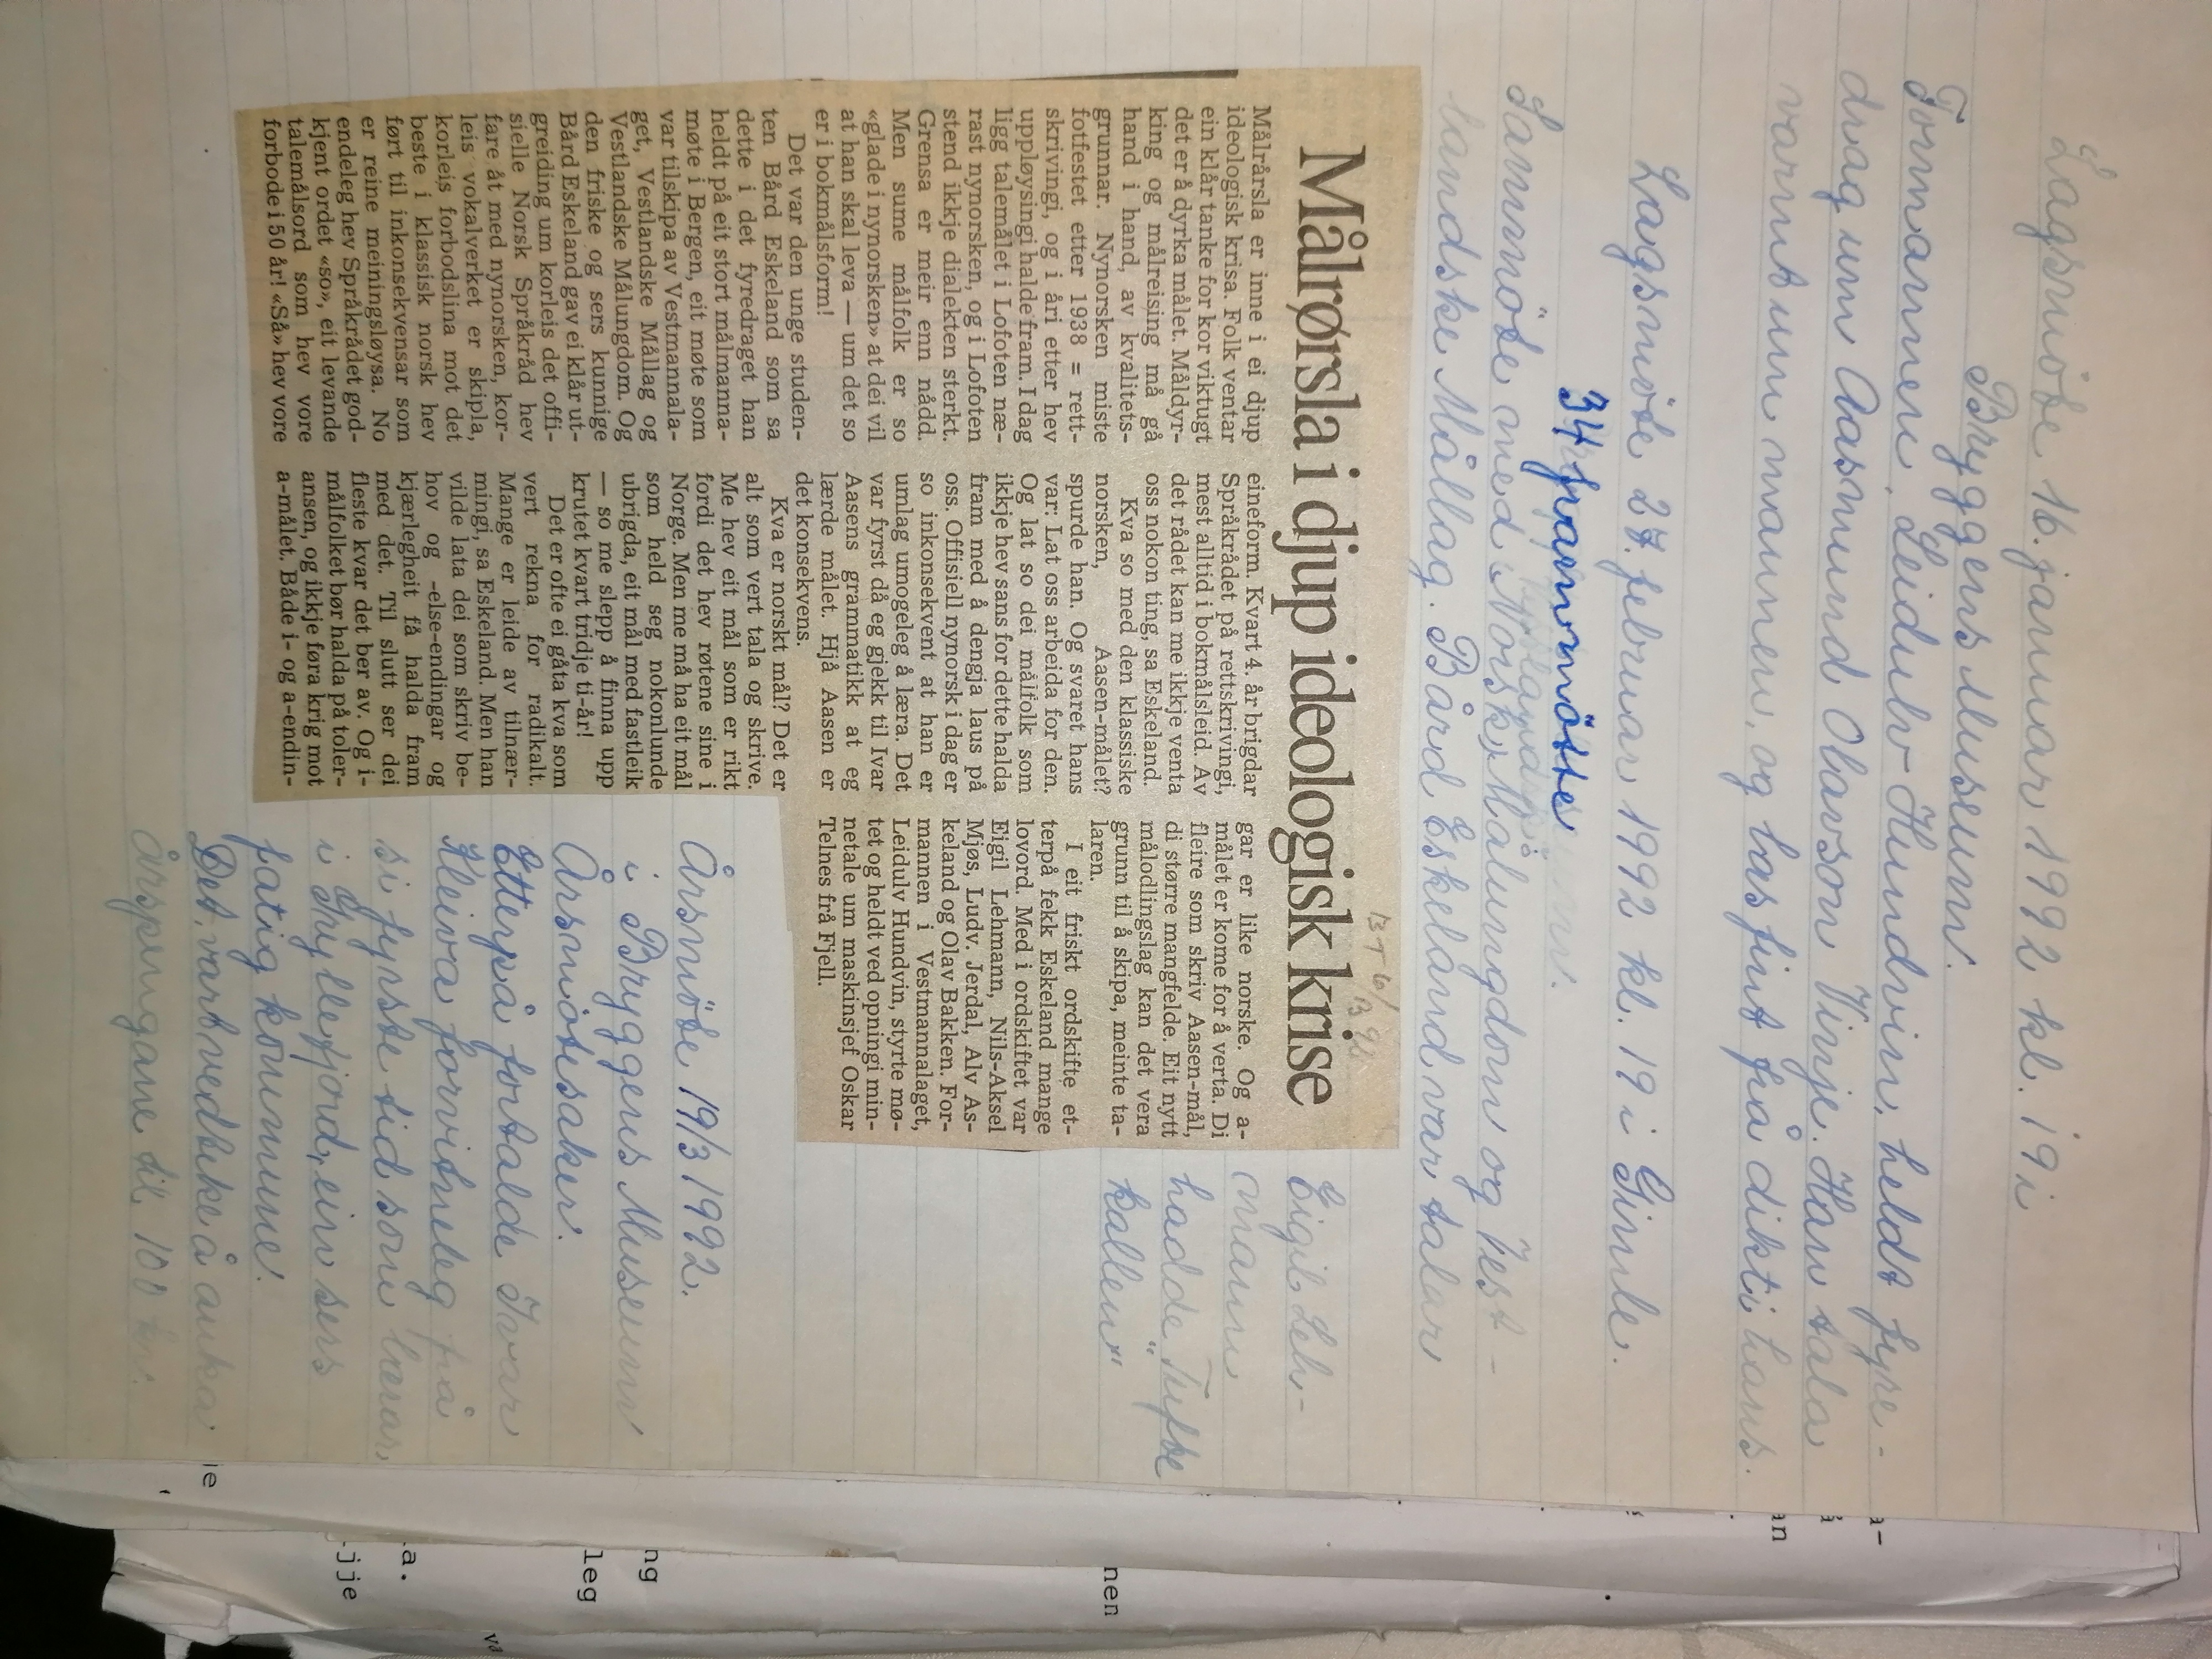 Lagsmöte 16. januar 1992 kl. 19 i
Bryggens Museum.
Formannen, Leidulv Hundvin, heldt fyre-
drag um Aasmund Olavson Vinje. Han tala
varmt um mannen, og las fint frå dikti hans.
Lagsmöte 27. februar 1992 kl. 19 i Gimle.
34 frammötte
Sammöte med Norsk Målungdom og Vest-
landske Mållag. Bård Eskeland var talar
BT 6/3 92
Målrørsla i djup ideologisk krise
Målrårsla er inne i ei djup
ideologisk krisa. Folk ventar
ein klår tanke for kor viktugt
det er å dyrka målet. Måldyr-
king og målreising må gå
hand i hand, av kvalitets-
grunnar. Nynorsken miste
fotfestet etter 1938 = rett-
skrivingi, og i åri etter hev
uppløysingi halde fram. I dag
ligg talemålet i Lofoten næ-
rast nynorsken, og i Lofoten
stend ikkje dialekten sterkt.
Grensa er meir enn nådd.
Men sume målfolk er so
«glade i nynorsken» at dei vil
at han skal leva — um det so
er i bokmålsform!
Det var den unge studen-
ten Bård Eskeland som sa
dette i det fyredraget han
heldt på eit stort målmanna-
møte i Bergen, eit møte som
var tilskipa av Vestmannala-
get, Vestlandske Mållag og
Vestlandske Målungdom. Og
den friske og sers kunnige
Bård Eskeland gav ei klår ut-
greiding um korleis det offi-
sielle Norsk Språkråd hev
fare åt med nynorsken, kor-
leis vokalverket er skipla,
korleis forbodslina mot det
beste i klassisk norsk hev
ført til inkonsekvensar som
er reine meiningsløysa. No
endeleg hev Språkrådet god-
kjent ordet «so», eit levande
talemålsord som hev vore
forbode i 50 år! «Så» hev vore
eineform. Kvart 4. år brigdar
Språkrådet på rettskrivingi,
mest alltid i bokmålsleid. Av
det rådet kan me ikkje venta
oss nokon ting, sa Eskeland.
Kva so med den klassiske
norsken, Aasen-målet?
spurde han. Og svaret hans
var: Lat oss arbeida for den.
Og lat so dei målfolk som
ikkje hev sans for dette halda
fram med å dengja laus på
oss. Offisiell nynorsk i dag er
so inkonsekvent at han er
umlag umogeleg å læra. Det
var fyrst då eg gjekk til Ivar
Aasens grammatikk at eg
lærde målet. Hjå Aasen er
det konsekvens.
Kva er norskt mål? Det er
alt som vert tala og skrive.
Me hev eit mål som er rikt
fordi det hev røtene sine i
Norge. Men me må ha eit mål
som held seg nokonlunde
ubrigda, eit mål med fastleik
— so me slepp å finna upp
krutet kvart tridje ti-år!
Det er ofte ei gåta kva som
vert rekna for radikalt.
Mange er leide av tilnær-
mingi, sa Eskeland. Men han
vilde lata dei som skriv be-
hov og -else-endingar og
kjærlegheit få halda fram
med det. Til slutt ser dei
fleste kvar det ber av. Og i-
målfolket bør halda på toler-
ansen, og ikkje føra krig mot
a-målet. Både i- og a-endin-
gar er like norske. Og a-
målet er kome for å verta. Di
fleire som skriv Aasen-mål,
di større mangfelde. Eit nytt
målodlingslag kan det vera
grunn til å skipa, meinte ta-
laren.
I eit friskt ordskifte et-
terpå fekk Eskeland mange
lovord. Med i ordskiftet var
Eigil Lehmann, Nils-Aksel
Mjøs, Ludv. Jerdal, Alv As-
keland og Olav Bakken. For-
mannen i Vestmannalaget,
Leidulv Hundvin, styrte mø-
tet og heldt ved opningi min-
netale um maskinsjef Oskar
Telnes frå Fjell.
Eigil Leh-
mann
hadde "Tufte
kallen"
Årsmöte 19/3 1992.
i Bryggens Museum
Årsmötesaker.
Etterpå fortalde Ivar
Kleiva forvitneleg frå
si fyrste tid som lærar
i Gryllefjord, ein sers
fatig kommune.
Det vart vedteke å auka
årspengane til 100 kr.